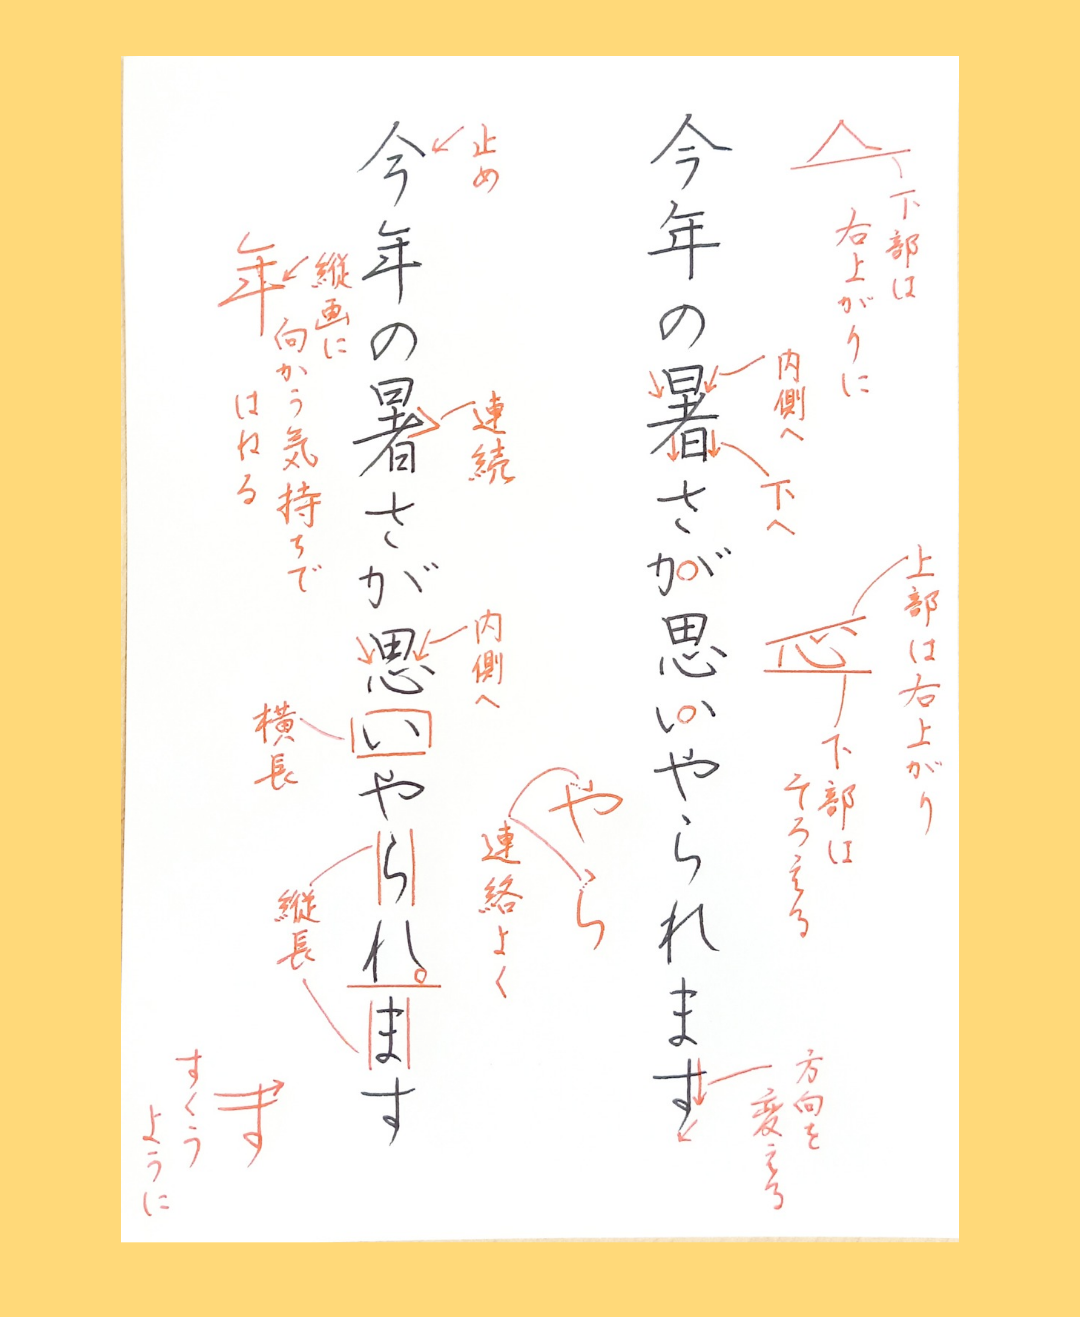 下部は
右上がりに
今年の暑さが思いやられます
内側へ
下へ
上部は右上がり
心
下部は
そろえる
やら
連絡よく
方向を
変える
止め
今年の暑さが思いやられます
連続
内側へ
年
縦画に
向かう気持ちで
はねる
横長
縦長
す
すくう
ように